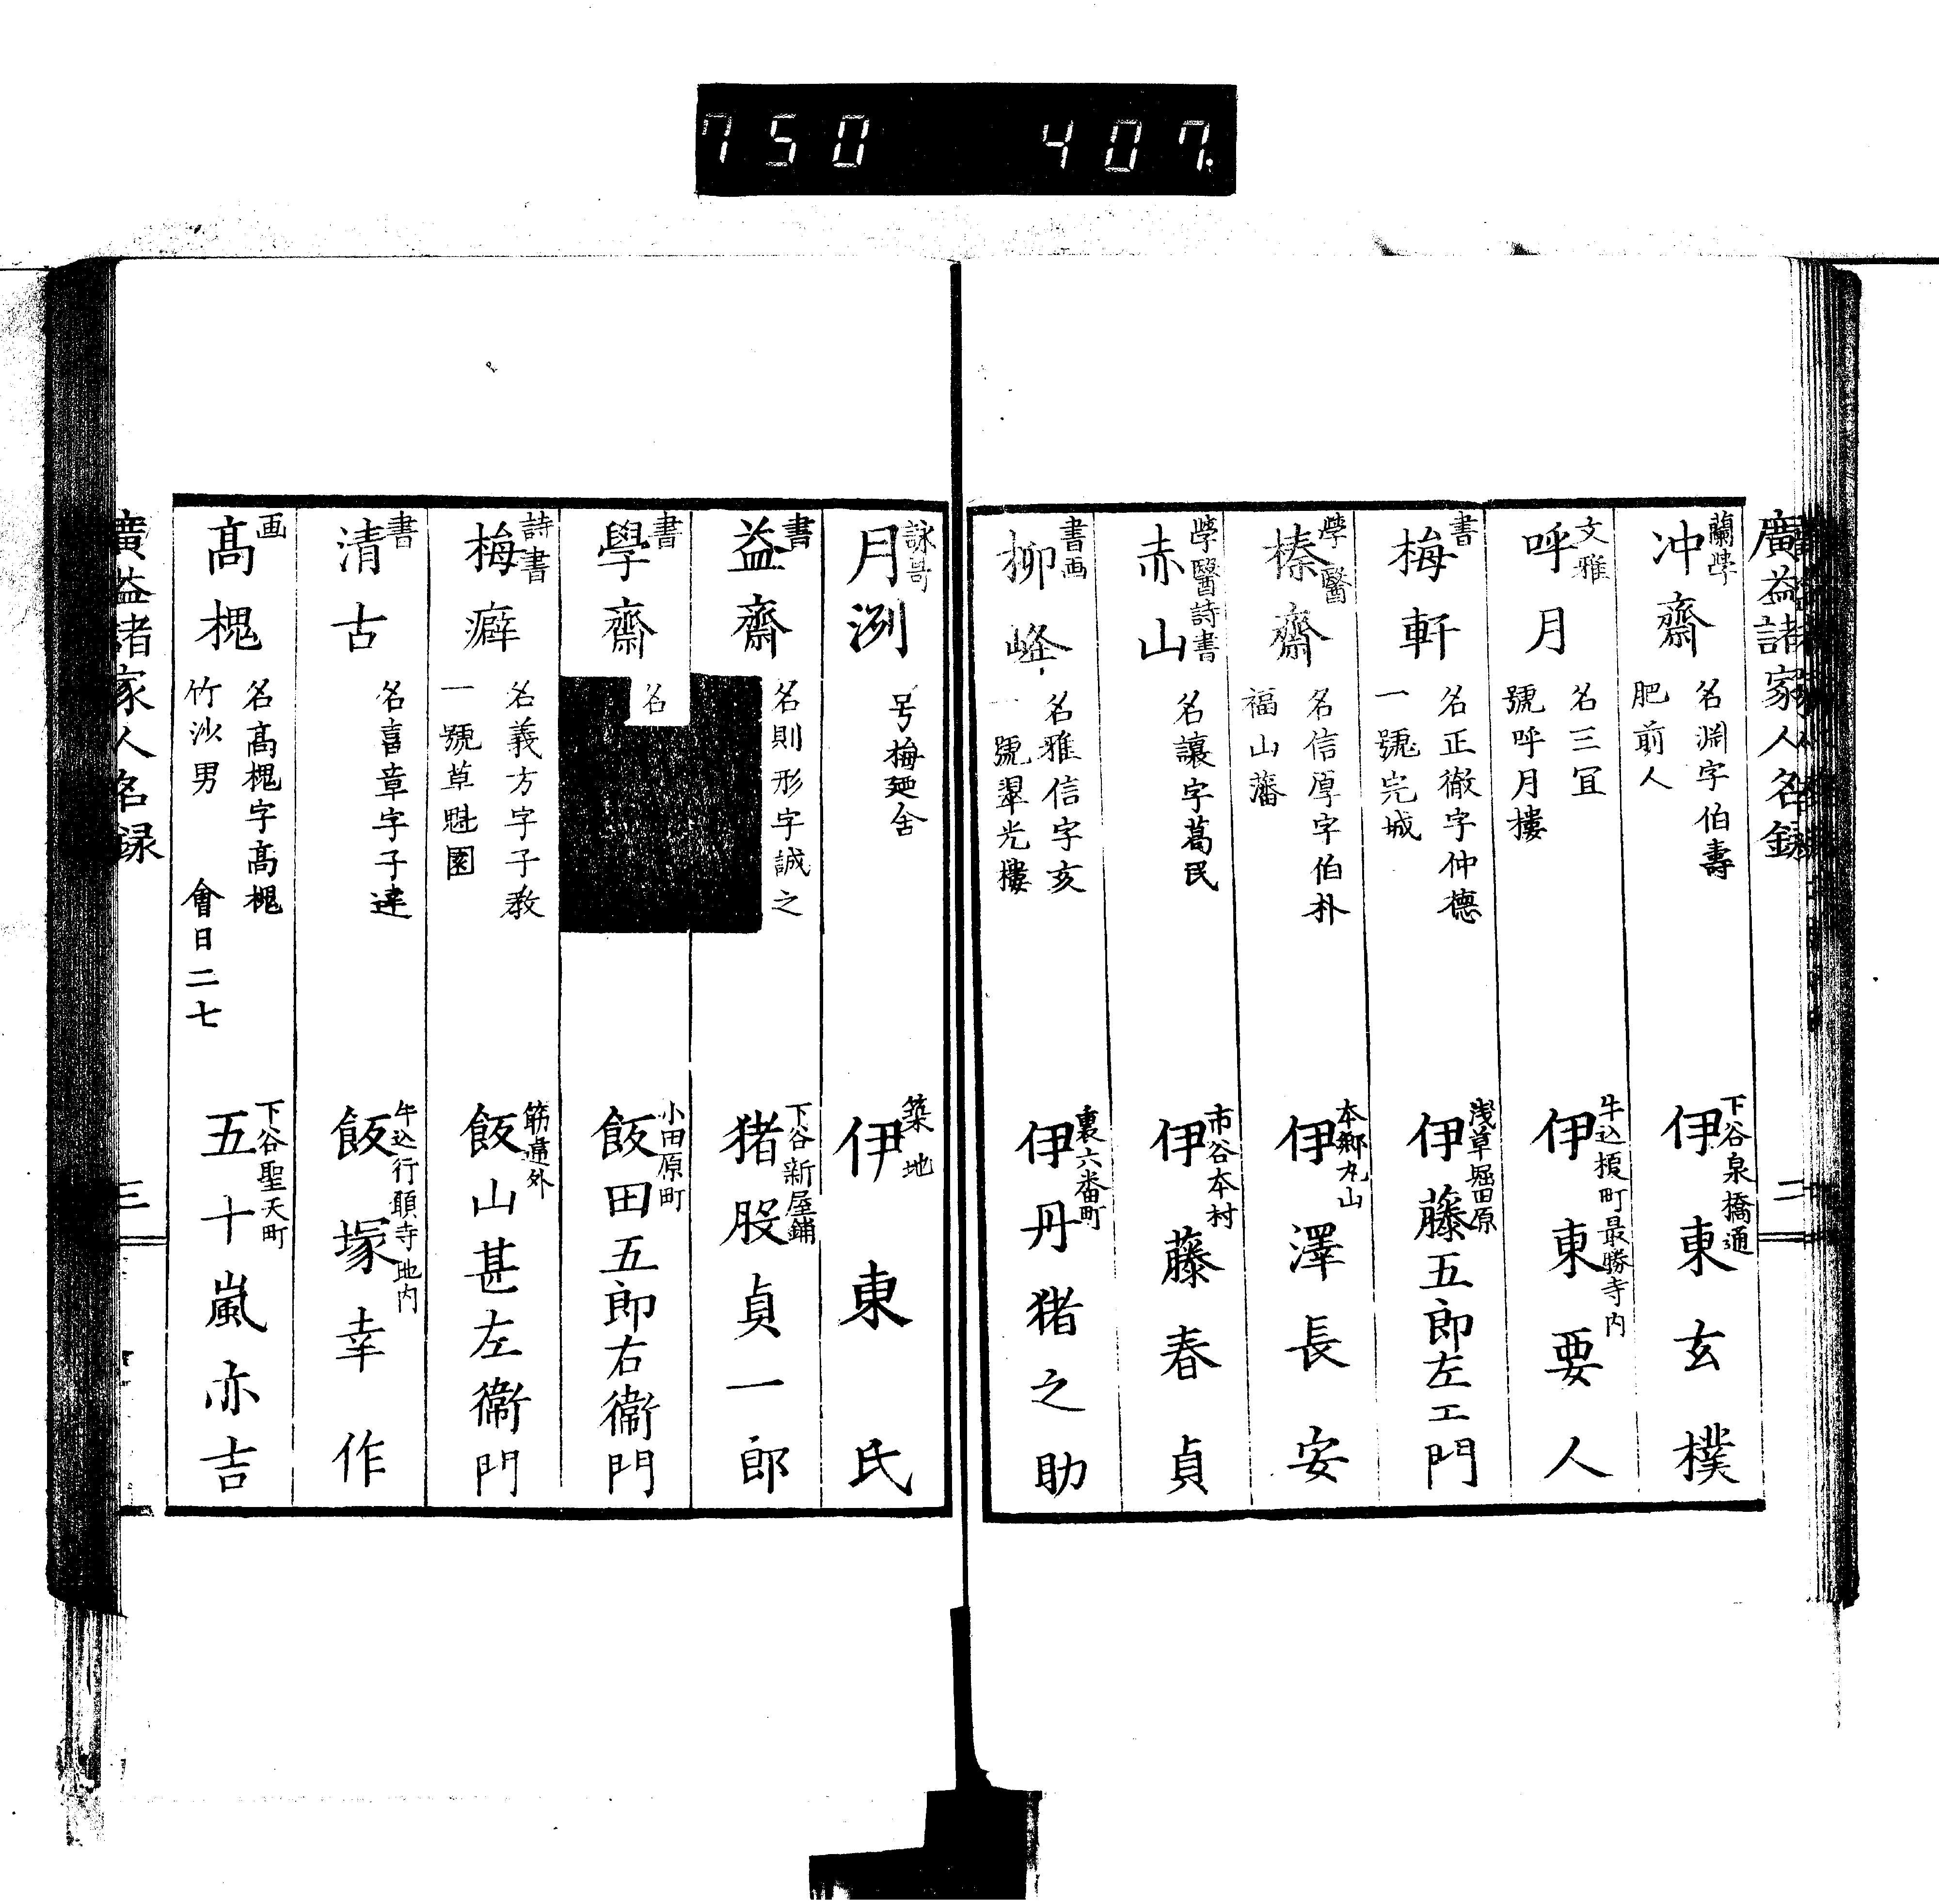 750 407.
廣益諸家人名録
二
蘭學
冲齋
名淵字伯壽
肥前人
下谷泉橋通
伊東玄樸
文雅
呼月
名三冝
號呼月樓
牛込榎町最勝寺内
伊東要人
書
梅軒
名正徹字仲德
一號完城
浅草堀田原
伊藤五郎左エ門
學醫
榛齋
名信厚字伯朴
福山藩
本郷丸山
伊澤長安
學醫詩書
赤山
名讓字葛民
市谷本村
伊藤春貞
書画
柳峰
名雅信字亥
一號翠光樓
裏六番町
伊丹猪之助
詠哥
月渕
号梅廼舍
築地
伊東氏
書
益齋
名則形字誠之
下谷新屋鋪
猪股貞一郎
書
學齋
名
小田原町
飯田五郎右衞門
詩書
梅癖
名義方字子教
一號草魁園
筋違外
飯山甚左衞門
書
清古
名喜章字子達
牛込行願寺地内
飯塚幸作
画
高槐
名高槐字高槐
竹沙男 會日二七
下谷聖天町
五十嵐亦吉
廣益諸家人名録
三